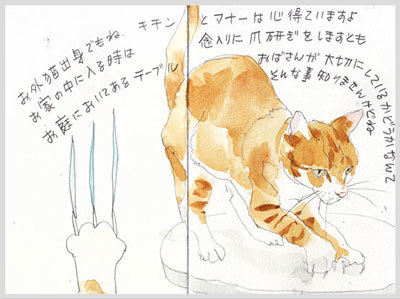 お外猫出身でもね、キチンとマナーは心得ていますよ
お家の中に入る時は念入りに爪研ぎをしますとも
お庭においてあるテーブルおばさんが大切にしているかどうかなんて
そんな事知りませんけどね